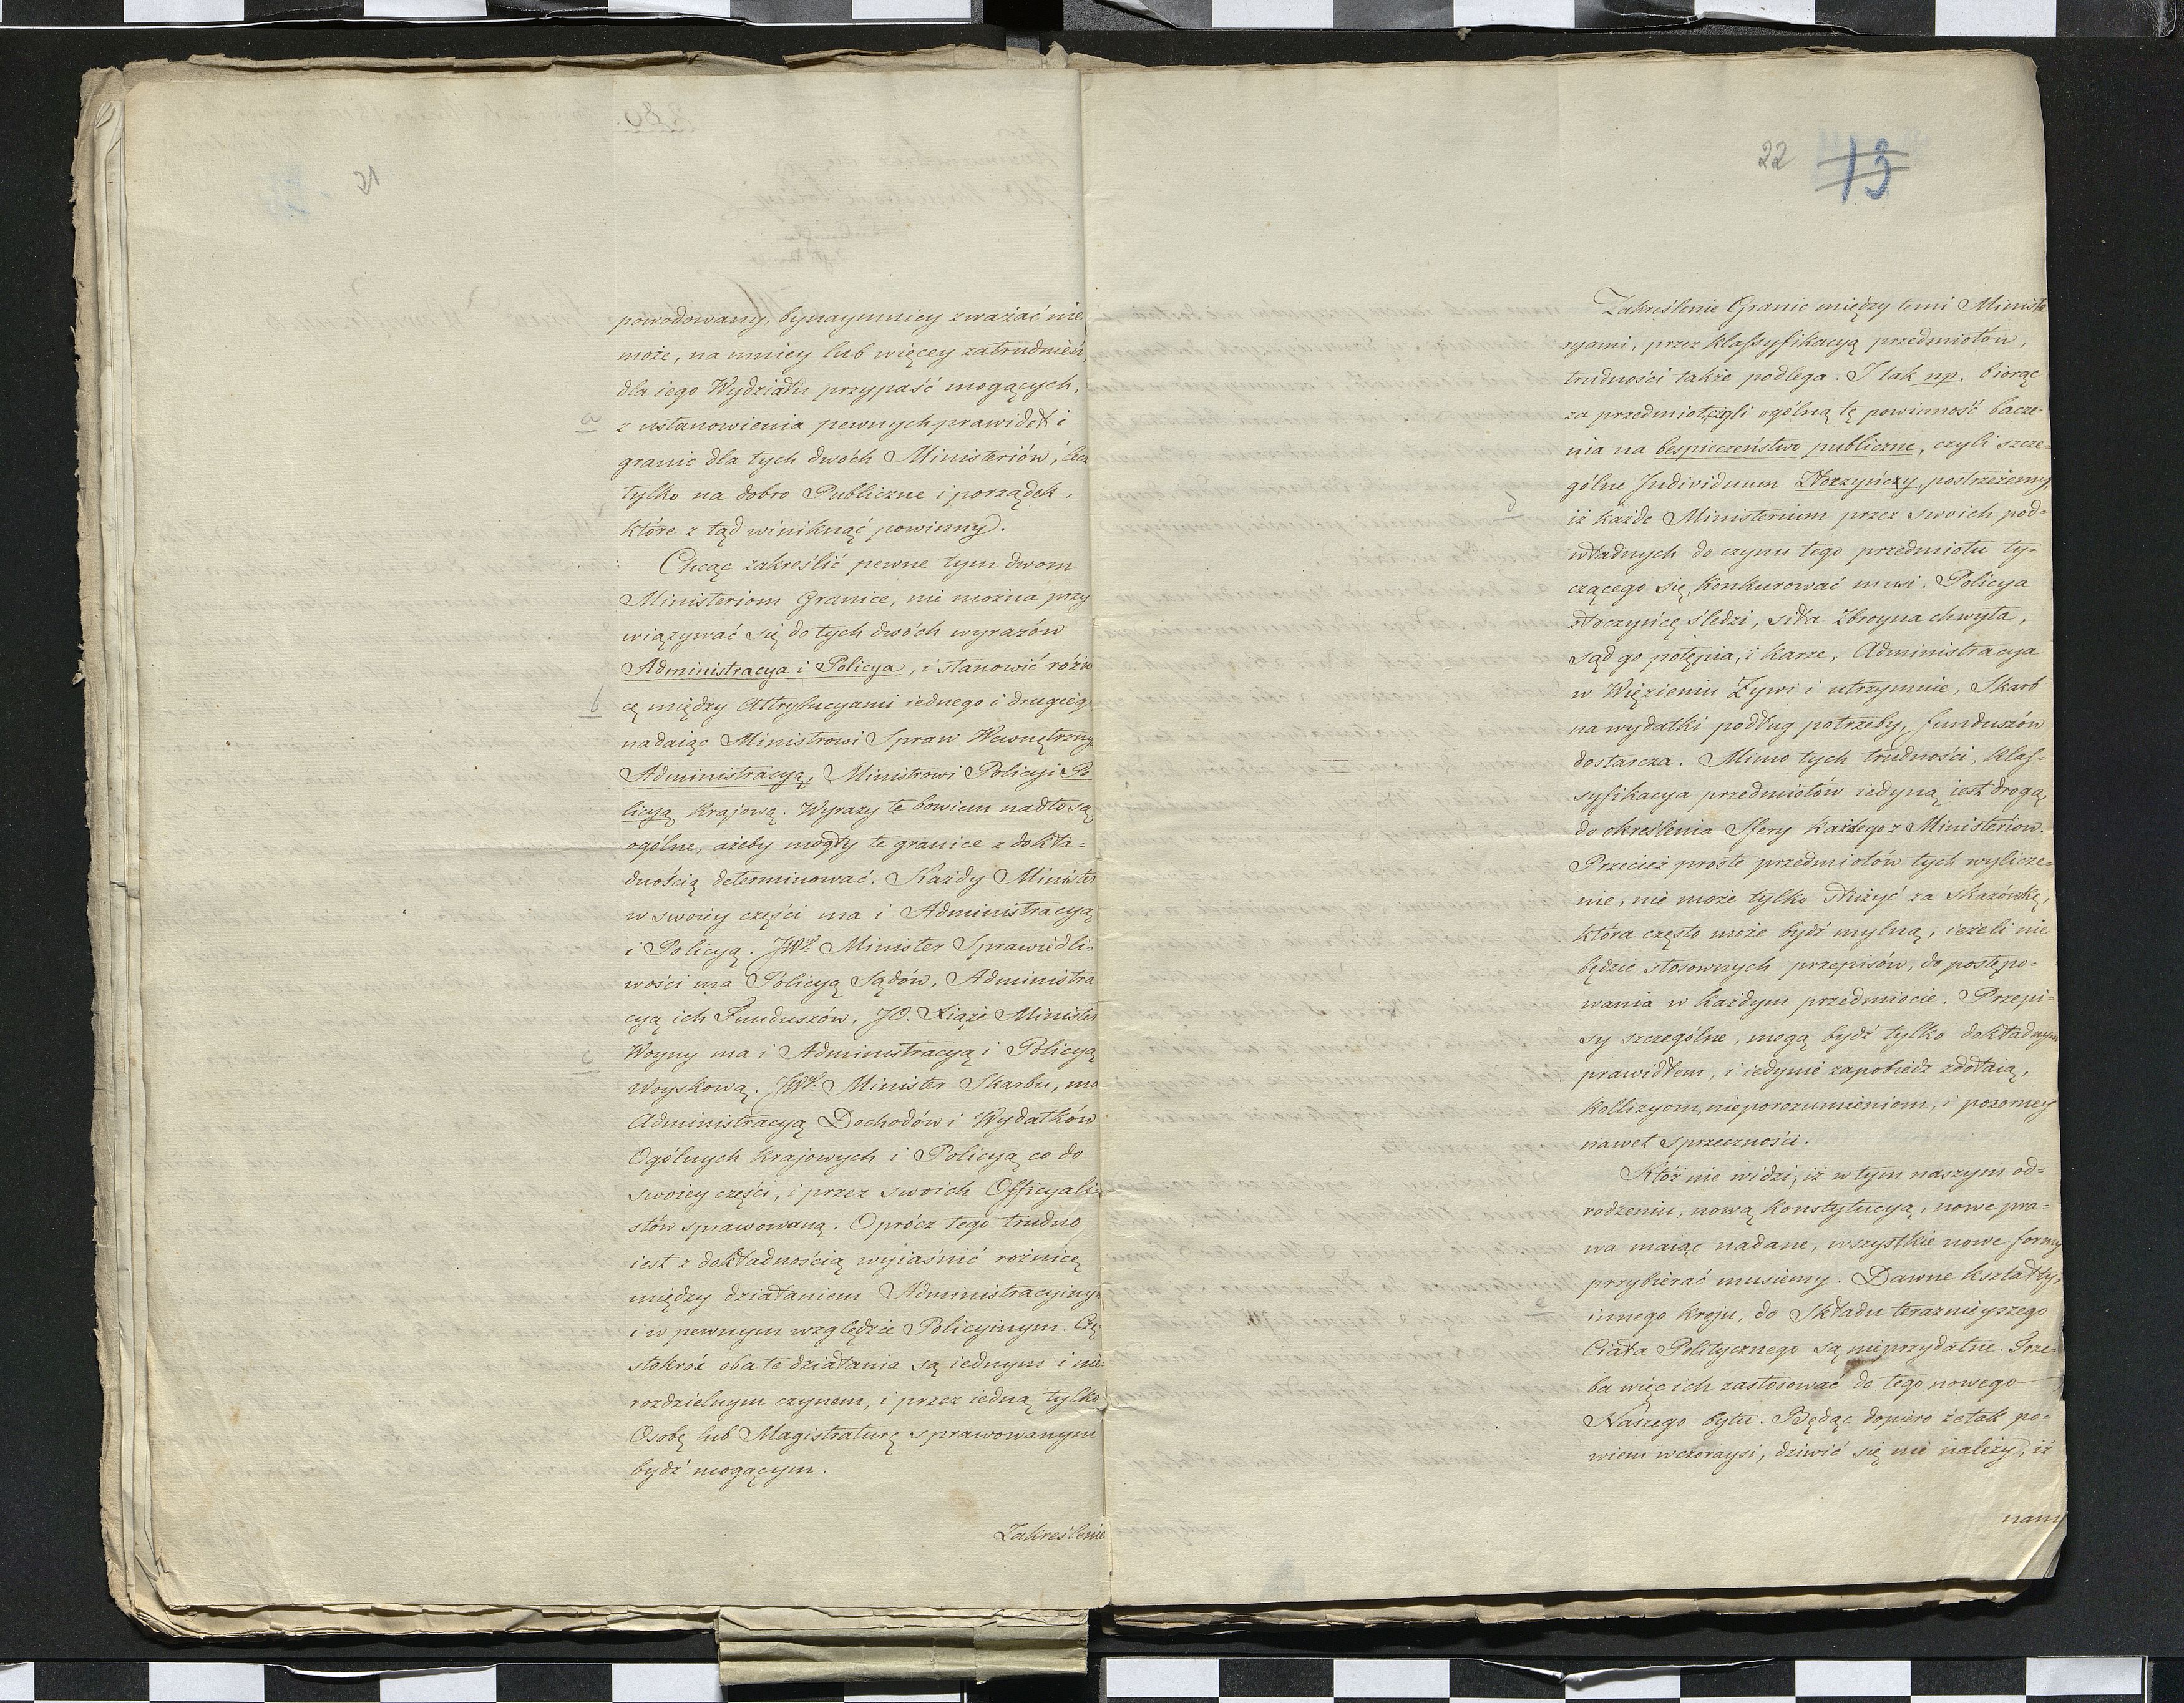 21
powodowany, bynaymniey zważać nie
może, na mniey lub więcey zatrudnień,
dla iego Wydziału przypaść mogących,
a
z ustanowienia pewnych prawideł i
granic dla tych dwóch Ministeriów, lecz
tylko na dobro Publiczne i porządek,
które z tąd winiknąć powinny).
Chcąc zakreślić pewne tym dwom
Ministeriom Granice, nie można przy
wiązywać się do tych dwóch wyrazów
Administracya i Policya, i stanowić różni
b
cę między Attrybucyami iednego i drugiego
nadaiąc Ministrowi Spraw Wewnętrzny
Administracyą, Ministrowi Policyi Po
licyą Krajową. Wyrazy te bowiem nadto są
ogólne, ażeby mogły te granice z dokła=
dnością determinować. Każdy Minister
w swoiey części ma i Administracyą
i Policyą. JW. Minister Sprawiedli=
wości ma Policyą Sądów, Administra
cyą ich Funduszów, JO. Xiąże Minister
c
Woyny ma i Administracyą i Policyą
Woyskową. JW. Minister Skarbu, ma
Administracyą Dochodów i Wydatków
Ogólnych Krajowych i Policyą co do
swoiey części, i przez swoich Officyali
stów sprawowaną. Oprócz tego trudno
iest z dokładnością wyiaśnić rożnicę
między działaniem Administracyinym
i w pewnym względzie Policyinym. Czę
stokroć oba te działania są iednym i nie=
rozdzielnym czynem, i przez iedną tylko
Osobę lub Magistraturę sprawowanym
bydź mogącym.
Zakreślenie
22 13
Zakreślenie Granic między temi Ministe
ryami, przez klassyfikacyą przedmiotów,
trudności także podlega. I tak np. biorąc
za przedmiot, czyli ogólną tę powinność bacze=
nia na bespieczeństwo publiczne, czyli szcze=
gólne Individuum Złoczyńcy, postrzeżemy,
d
iż każde Ministerium przez swoich pod=
władnych do czynu tego przedmiotu ty=
czącego się, konkurować musi. Policya
złoczyńcę śledzi, siła Zbroyna chwyta,
sąd go potępia, i karze, Administracya
w Więzieniu Żywi i utrzymuie, Skarb
na wydatki podług potrzeby, funduszów
dostarcza. Mimo tych trudności, klas=
syfikacya przedmiotów iedyną iest drogą,
do określenia Sfery każdego z Ministeriow.
Przecież proste przedmiotów tych wylicze=
nie, nie może tylko służyć za skazówkę,
która często może bydź mylną, ieżeli nie
będzie stosownych przepisów, do postępo=
wania w każdym przedmiocie. Przepi=
sy szczególne, mogą bydź tylko dokładnym
prawidłem, i iedynie zapobiedz zdołaią,
kollizyom, nieporozumieniom, i pozorney
nawet sprzeczności.
Któż nie widzi, iż w tym naszym od=
rodzeniu, nową Konstytucyą, nowe pra=
wa maiąc nadane, wszystkie nowe formy
przybierać musiemy. Dawne kształty,
e
innego kroju, do Składu terazniejszego
Ciała Politycznego są nieprzydatne. Trze=
ba więc ich zastosować do tego nowego
Naszego bytu. Będąc dopiero że tak po=
wiem wczoraysi, dziwić się nie należy, iż
nam